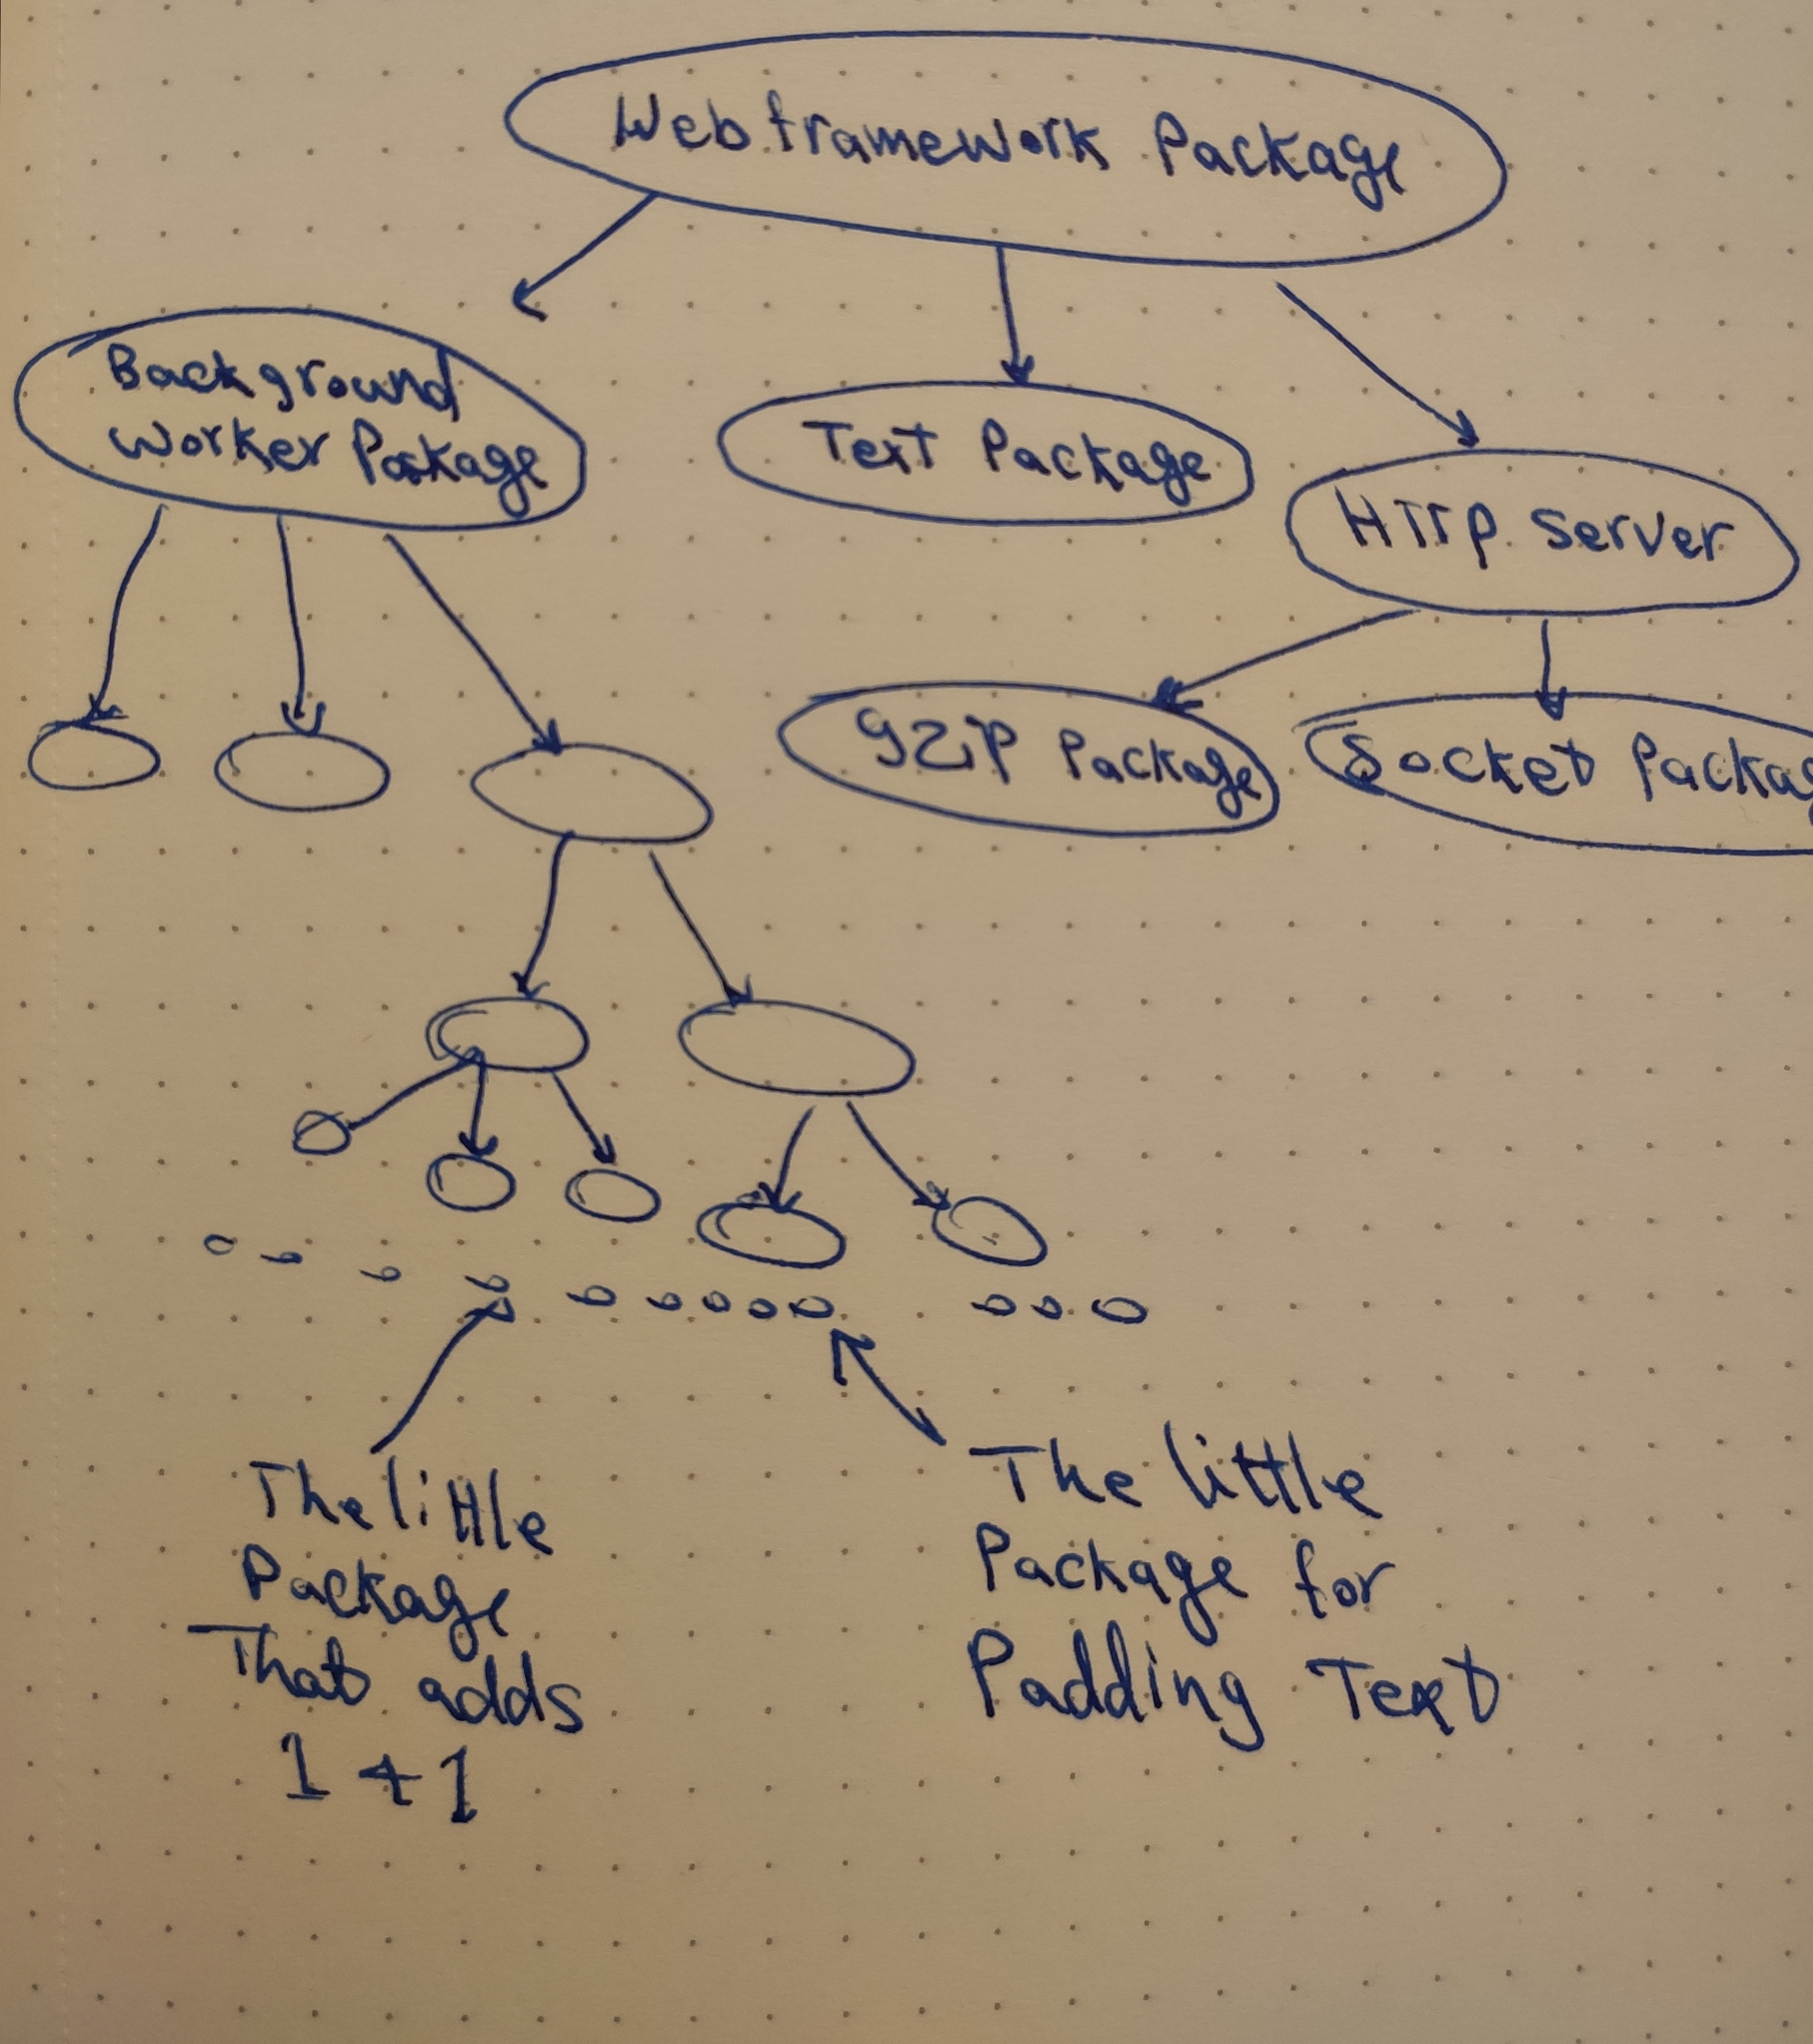 Web framework Package
Background
Worker Package
Text Package
HTTP Server
gzip Package
Socket Packag
The little
Package
That adds
1 + 1
The little
Package for
Padding Text